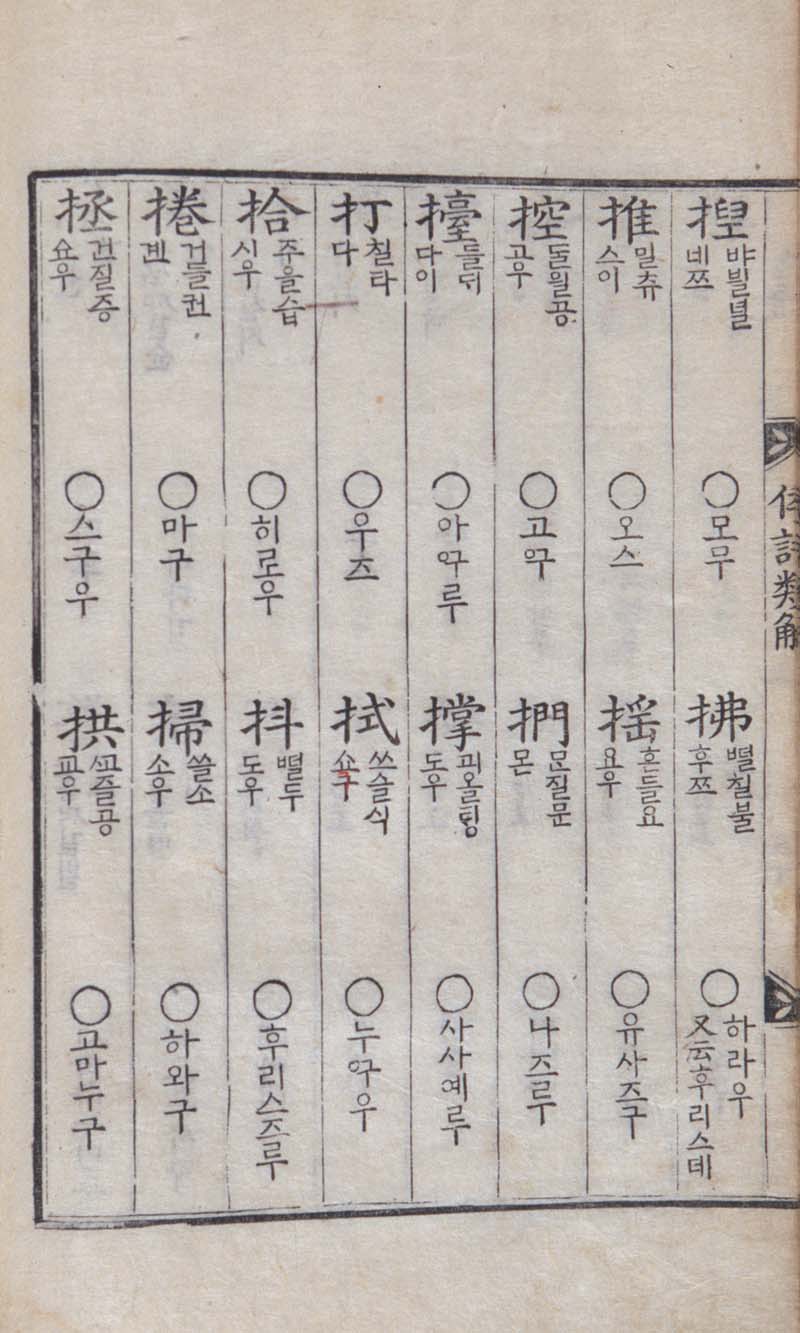 倭語類解
捏 뱌빌녈 네쯔 ○모무
拂 떨칠불 후쯔 ○하라우 又云후리스데
推 밀츄 스이 ○오스
搖 흔들요 요우 ○유사즈구
控 둘읠공 고우 ○고ᅁᅮ
捫 문질문 몬 ○나즈루
擡 들ᄃᆡ 다이 ○아ᅁᅮ루
撑 괴올ᄐᆡᆼ 도우 ○사사예루
打 칠타 다 ○우즈
拭 쓰슬식 쇼구 ○누ᅁᅮ우
拾 주을습 시우 ○히로우
抖 떨두 도우 ○후리스즈루
捲 거들권 겐 ○마구
掃 쓸소 소우 ○하와구
拯 건질증 쇼우 ○스구우
拱 ᄭᅩ즐공 교우 ○고마누구